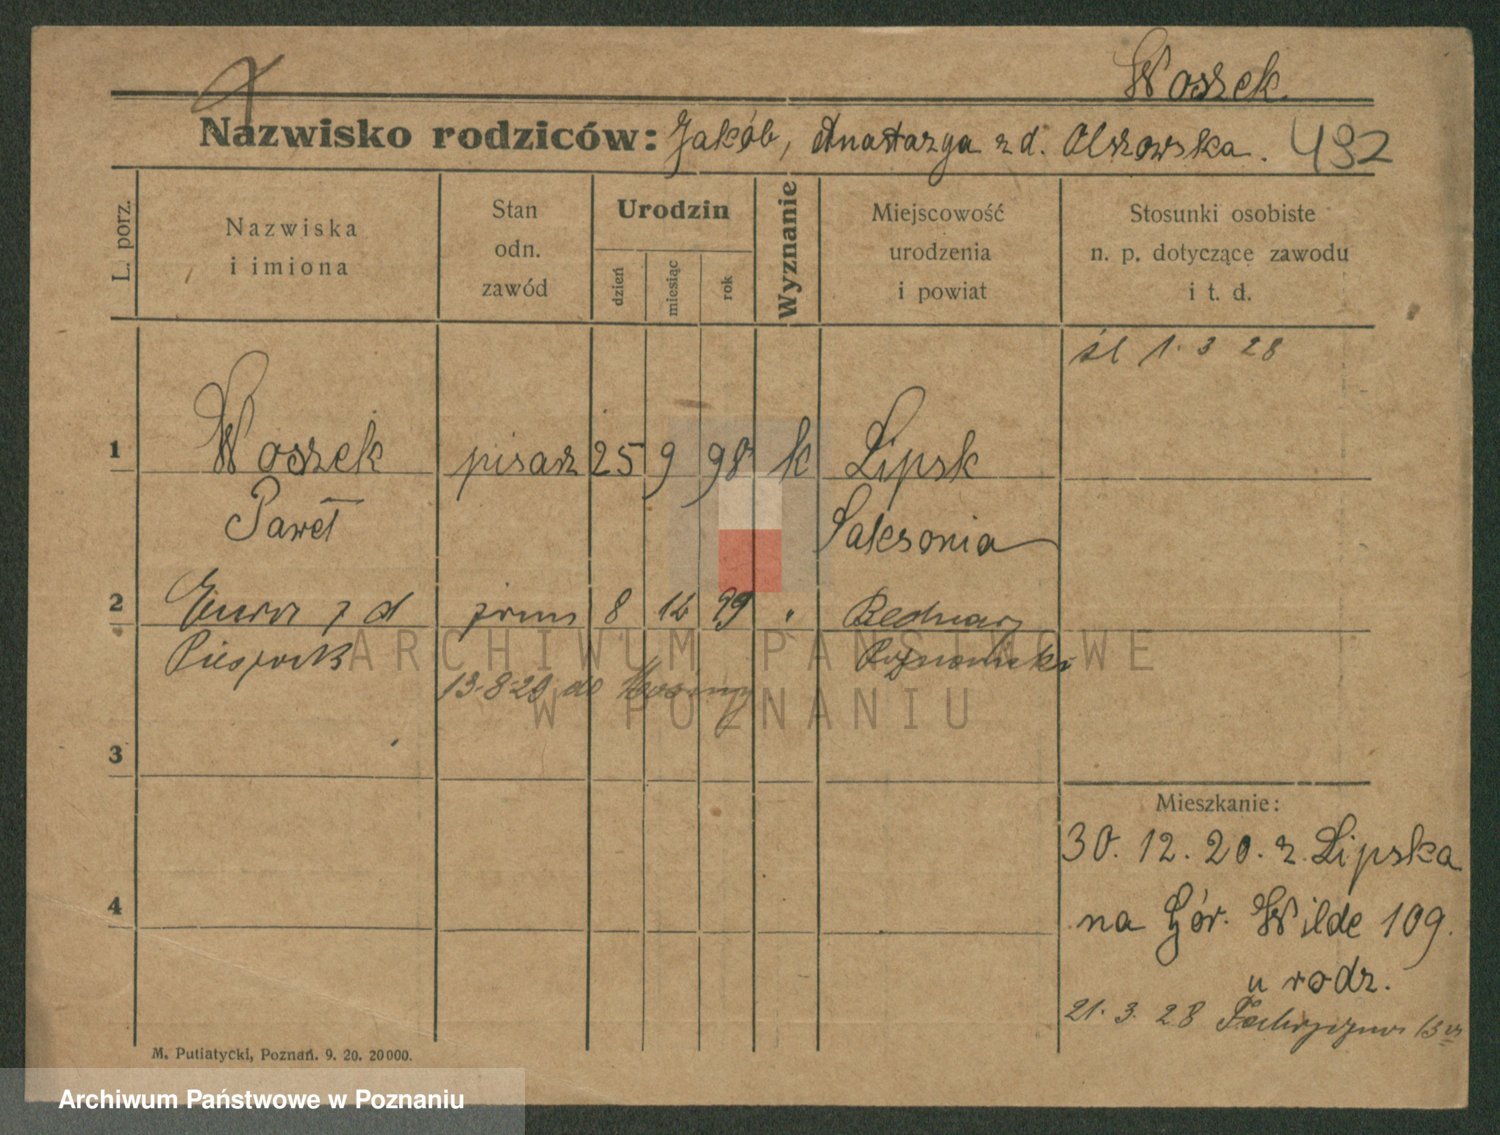 Woszek.
Nazwisko rodziców: Jakób, Anastazya z d. Olszowska. 492
L. porz.
Nazwiska
i imiona
Stan
odn.
zawód
Urodzin
dzień
miesiąc
rok
Wyznanie
Miejscowość
urodzenia
i powiat
Stosunki osobiste
n. p. dotyczące zawodu
i t. d.
śl 1. 3 28
1 Woszek pisarz 25 9 98 k Lipsk
Paweł Saksonia
2 z d 8 12 99 " Bednary
13-8-20 do
3
4
Mieszkanie:
30. 12. 20. z Lipska
na Gór. Wilde 109.
u rodz.
21. 3. 28
M. Putiatycki, Poznań. 9. 20. 20000.
ARCHIWUM PAŃSTWOWE
W POZNANIU
Archiwum Państwowe w Poznaniu